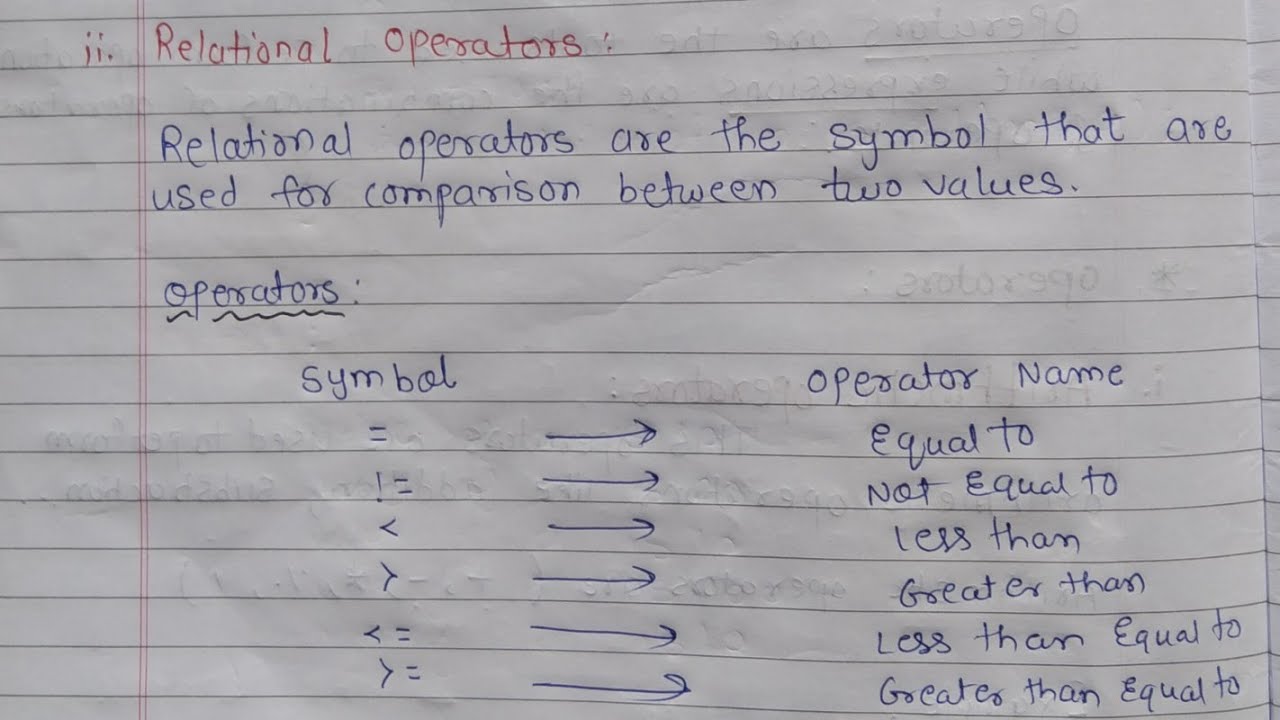 ii. Relational Operators:
Relational operators are the symbol that are
used for comparison between two values.
Operators:
Symbol Operator Name
= → Equal to
!= → Not Equal to
< → Less than
> → Greater than
<= → Less than Equal to
>= → Greater than Equal to